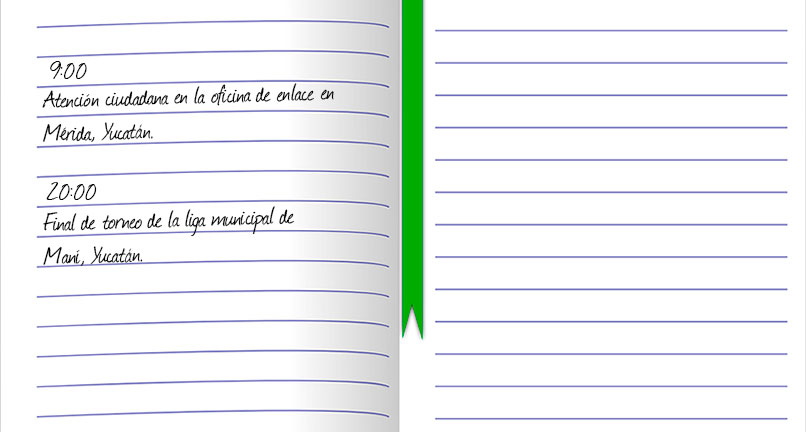 9:00
Atención ciudadana en la oficina de enlace en
Mérida, Yucatán.
20:00
Final de torneo de la liga municipal de
Maní, Yucatán.